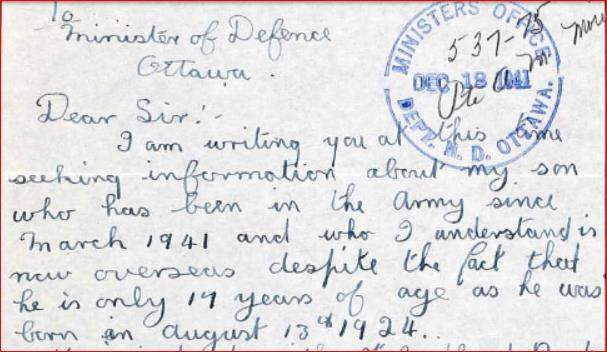 To
Minister of Defence
Ottawa.
MINISTERS OFFICE
537-75
DEC 18 1941
DEPT. N. D. OTTAWA.
Dear Sir:-
I am writing you at this time
seeking information about my son
who has been in the Army since
March 1941 and who I understand is
now overseas despite the fact that
he is only 17 years of age as he was
born in August 13th 1924..